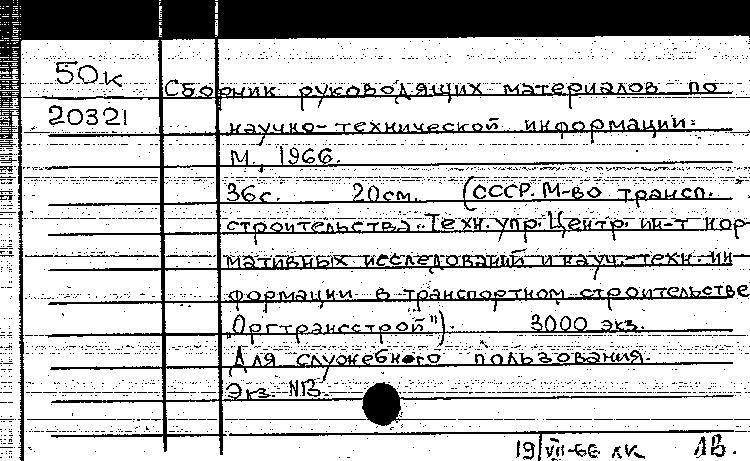 50к
Сборник руководящих материалов по
20321
научно-технической информации.
М., 1966.
36с. 20см. (СССР. М-во трансп.
строительства. Техн. упр. Центр. ин-т нор-
мативных исследований и науч.-техн. ин-
формации в транспортном строительстве
"Оргтрансстрой"). 3000 экз.
Для служебного пользования.
Экз. №
19/VII-66 ЛК ЛВ.